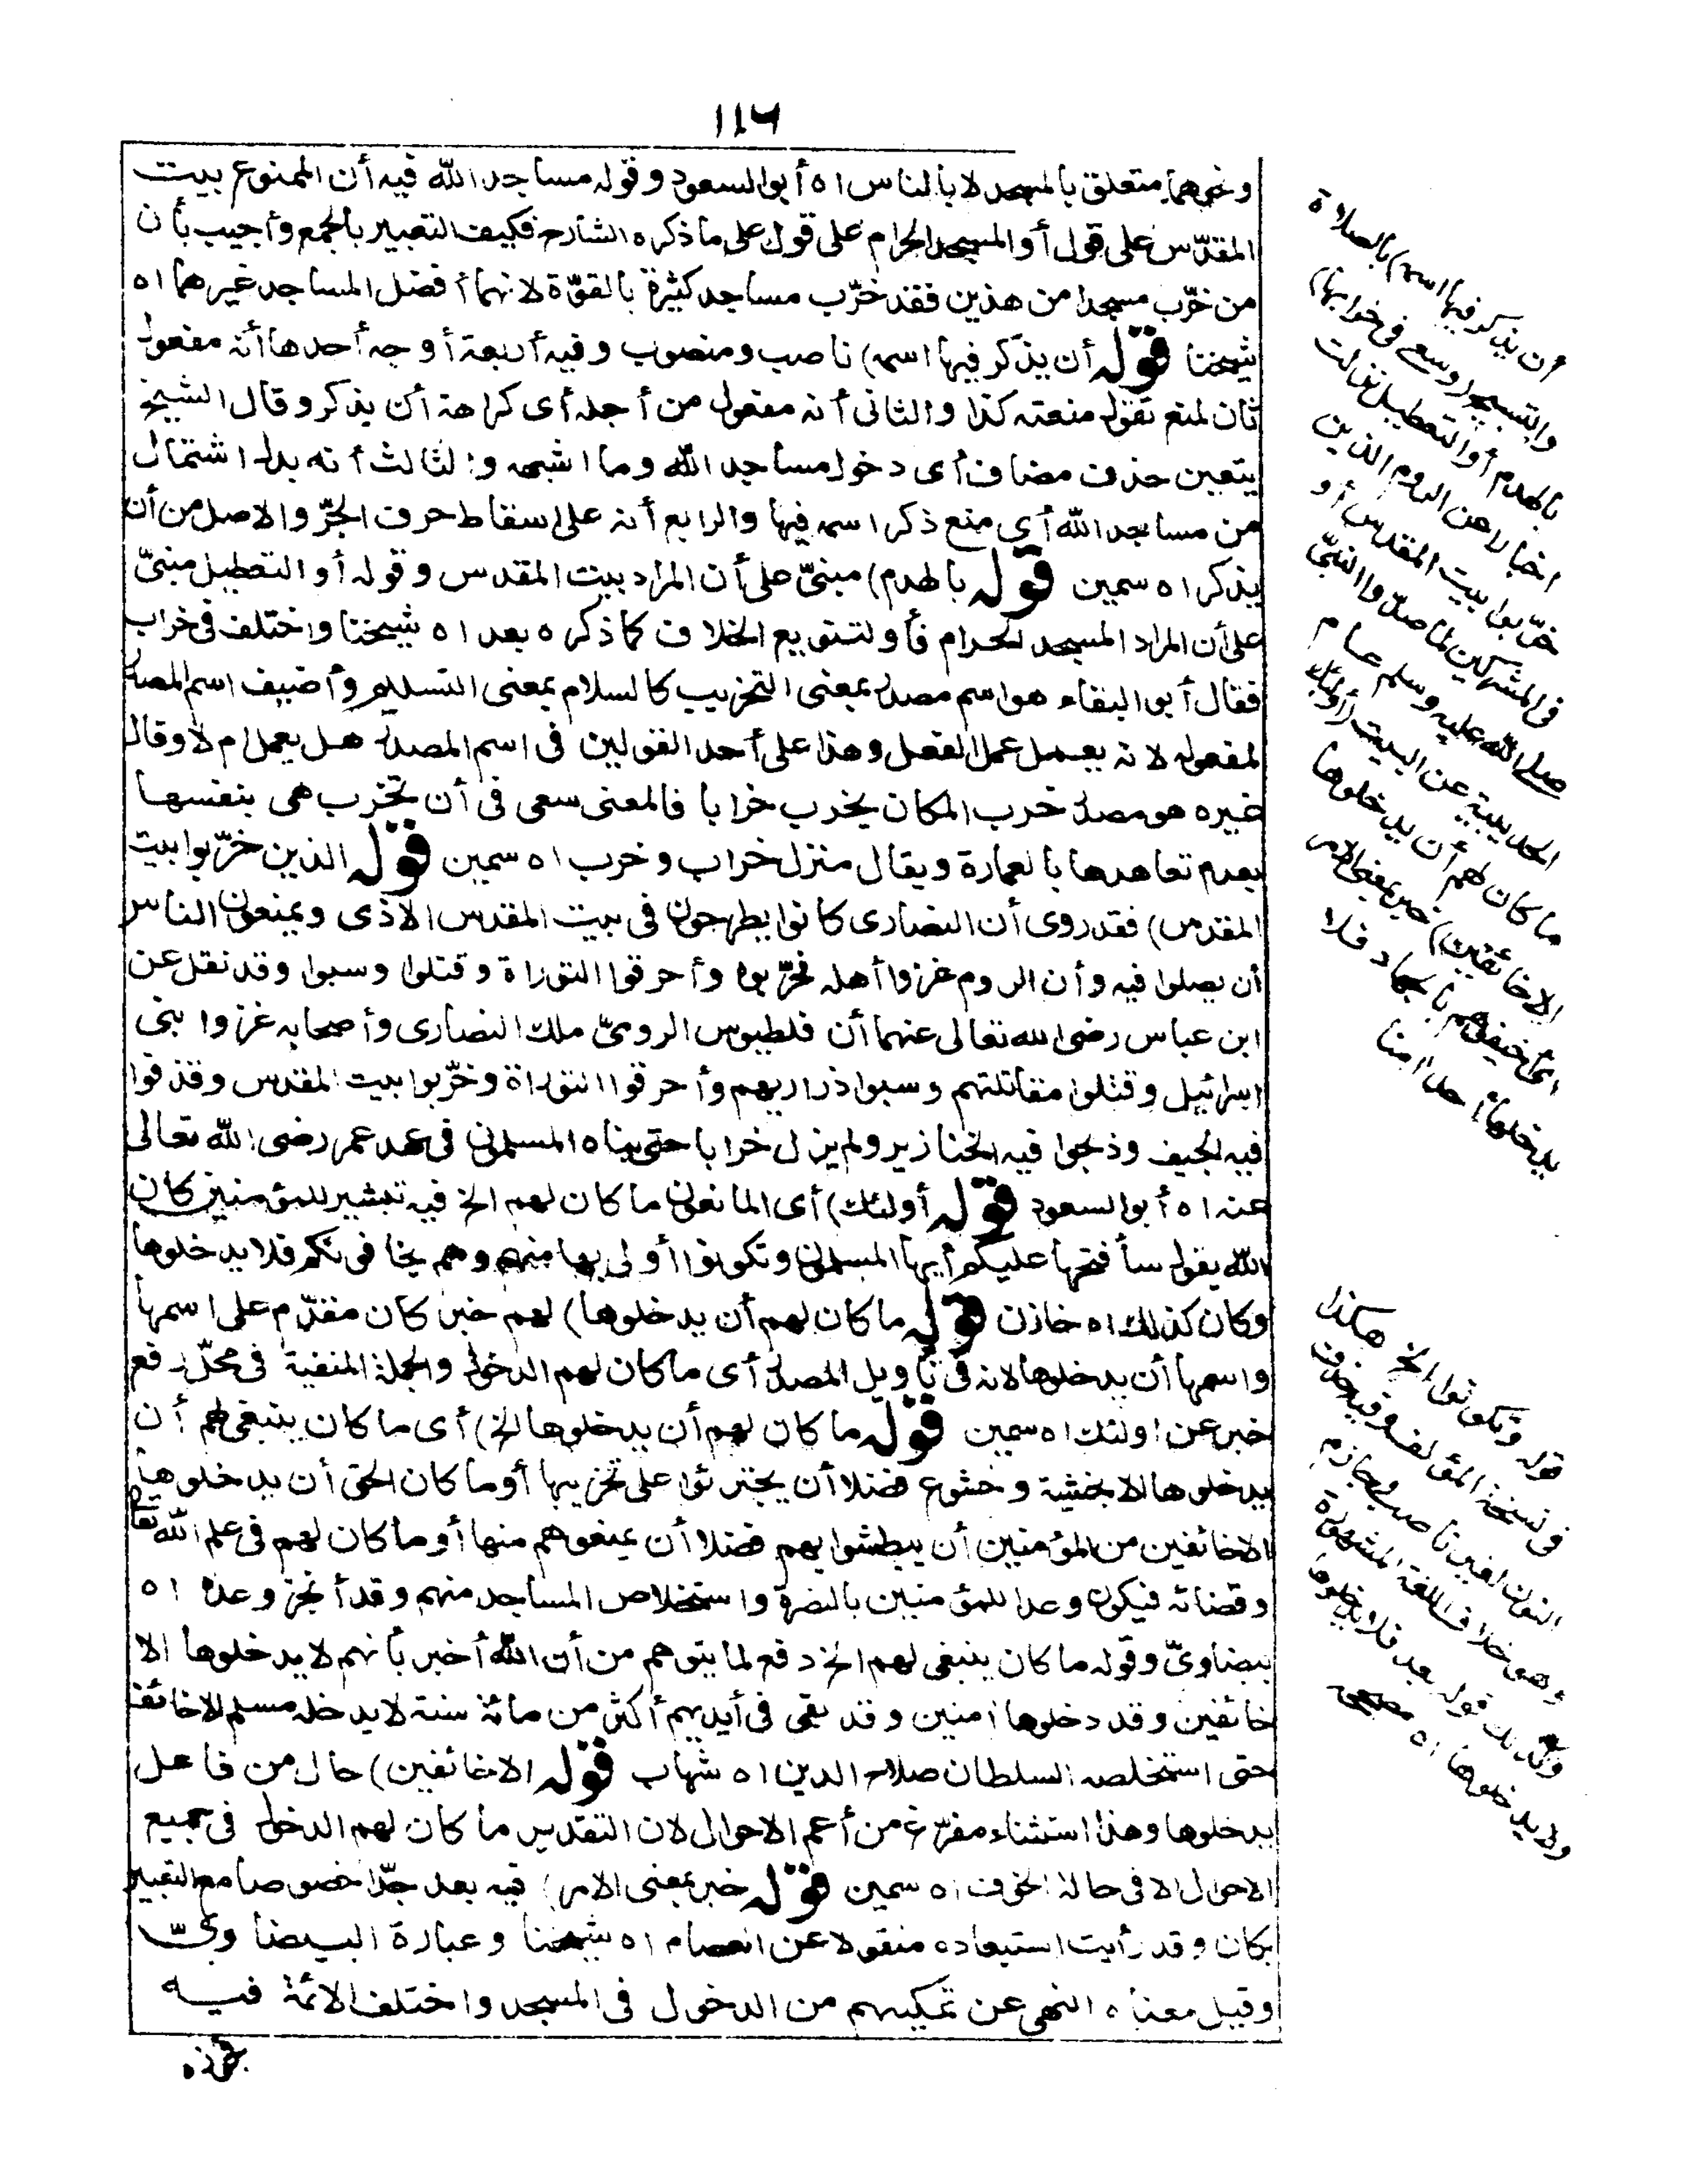 ١١٦
ونحوهما متعلق بالمسجد لا بالناس اه أبو السعود وقوله مساجد الله فيه أن الممنوع بيت
المقدّس على قول أو المسجد الحرام على قول على ما ذكره الشارح فكيف التعبير بالجمع وأجيب بأن
من خرّب مسجدا من هذين فقد خرّب مساجد كثيرة بالقوّة لانهما أفضل المساجد غيرهما اه
شيخنا قوله أن يذكر فيها اسمه) ناصب ومنصوب وفيه أربعة أوجه أحدها أنه مفعول
ثان لمنع تقول منعته كذا والثانى أنه مفعول من أجله أى كراهة أن يذكر وقال الشيخ
يتعين حذف مضاف أى دخول مساجد الله وما اشبهه والثالث أنه بدل اشتمال
من مساجد الله أى منع ذكر اسمه فيها والرابع أنه على اسقاط حرف الجرّ والاصل من أن
يذكر اه سمين قوله بالهدم) مبنىّ على أن المراد بيت المقدس وقوله أو التعطيل مبنىّ
على أن المراد المسجد الحرام فأو لتنويع الخلاف كما ذكره بعد اه شيخنا واختلف فى خراب
فقال أبو البقاء هو اسم مصدر بمعنى التخريب كالسلام بمعنى التسليم وأضيف اسم المصدر
لمفعوله لانه يعمل عمل الفعل وهذا على أحد القولين فى اسم المصدر هل يعمل ام لا وقال
غيره هو مصدر خرب المكان يخرب خرابا فالمعنى سعى فى أن تخرب هى بنفسها
بعدم تعاهدها بالعمارة ويقال منزل خراب وخرب اه سمين قوله الذين خرّبوا بيت
المقدس) فقد روى أن النصارى كانوا يطرحون فى بيت المقدس الاذى ويمنعون الناس
أن يصلوا فيه وأن الروم غزوا أهله فخرّبوه وأحرقوا التوراة وقتلوا وسبوا وقد نقل عن
ابن عباس رضى الله تعالى عنهما أن فلطيوس الرومىّ ملك النصارى وأصحابه غزوا بنى
اسرائيل وقتلوا مقاتلتهم وسبوا ذراريهم وأحرقوا التوراة وخرّبوا بيت المقدس وقذفوا
فيه الجيف وذبحوا فيه الخنازير ولم يزل خرابا حتى بناه المسلمون فى عهد عمر رضى الله تعالى
عنه اه أبو السعود قوله أولئك) أى المانعون ما كان لهم الخ فيه تبشير للمؤمنين كان
الله يقول سأفتحها عليكم أيها المسلمون وتكونوا أولى بها منهم وهم يخافونكم فلا يدخلوها
وكان كذلك اه خازن قوله ما كان لهم أن يدخلوها) لهم خبر كان مقدّم على اسمها
واسمها أن يدخلوها لانه فى تأويل المصدر أى ما كان لهم الدخول والجملة المنفية فى محلّ رفع
خبر عن اولئك اه سمين قوله ما كان لهم أن يدخلوها الخ) أى ما كان ينبغى لهم أن
يدخلوها الا بخشية وخشوع فضلا أن يجترئوا على تخريبها أو ما كان الحق أن يدخلوها
الا خائفين من المؤمنين أن يبطشوا بهم فضلا أن يمنعوهم منها أو ما كان لهم فى علم الله تعالى
وقضائه فيكون وعدا للمؤمنين بالنصرة واستخلاص المساجد منهم وقد أنجز وعده اه
بيضاوىّ وقوله ما كان ينبغى لهم الخ دفع لما يتوهم من أن الله أخبر بأنهم لا يدخلوها الا
خائفين وقد دخلوها امنين وقد بقى فى أيديهم أكثر من مائة سنة لا يدخله مسلم الا خائفا
حتى استخلصه السلطان صلاح الدين اه شهاب قوله الا خائفين) حال من فاعل
يدخلوها وهذا استثناء مفرّغ من أعم الاحوال لان التقدير ما كان لهم الدخول فى جميع
الاحوال الا فى حالة الخوف اه سمين قوله خبر بمعنى الامر) فيه بعد جدّا خصوصا مع التعبير
بكان وقد رأيت استبعاده منقولا عن العصام اه شيخنا وعبارة البيضاوىّ
وقيل معناه النهى عن تمكينهم من الدخول فى المسجد واختلف الائمة فيه
فجوّزه
أن يذكر فيها اسمه) بالصلاة
والتسبيح (وسعى فى خرابها)
بالهدم أو التعطيل نزلت
اخبارا عن الروم الذين
خرّبوا بيت المقدس أو
فى المشركين لما صدّوا النبىّ
صلى الله عليه وسلم عام
الحديبية عن البيت (أولئك
ما كان لهم أن يدخلوها
الا خائفين) خبر بمعنى الامر
اى أخيفوهم بالجهاد فلا
يدخلها أحد امنا
قوله وتكونوا الخ هكذا
فى نسخة المؤلف وفيه حذف
النون لغير ناصب وجازم
وهو خلاف اللغة المشهورة
وكذلك قوله بعد فلا يدخلوها
ولا يدخلوها اه مصححه